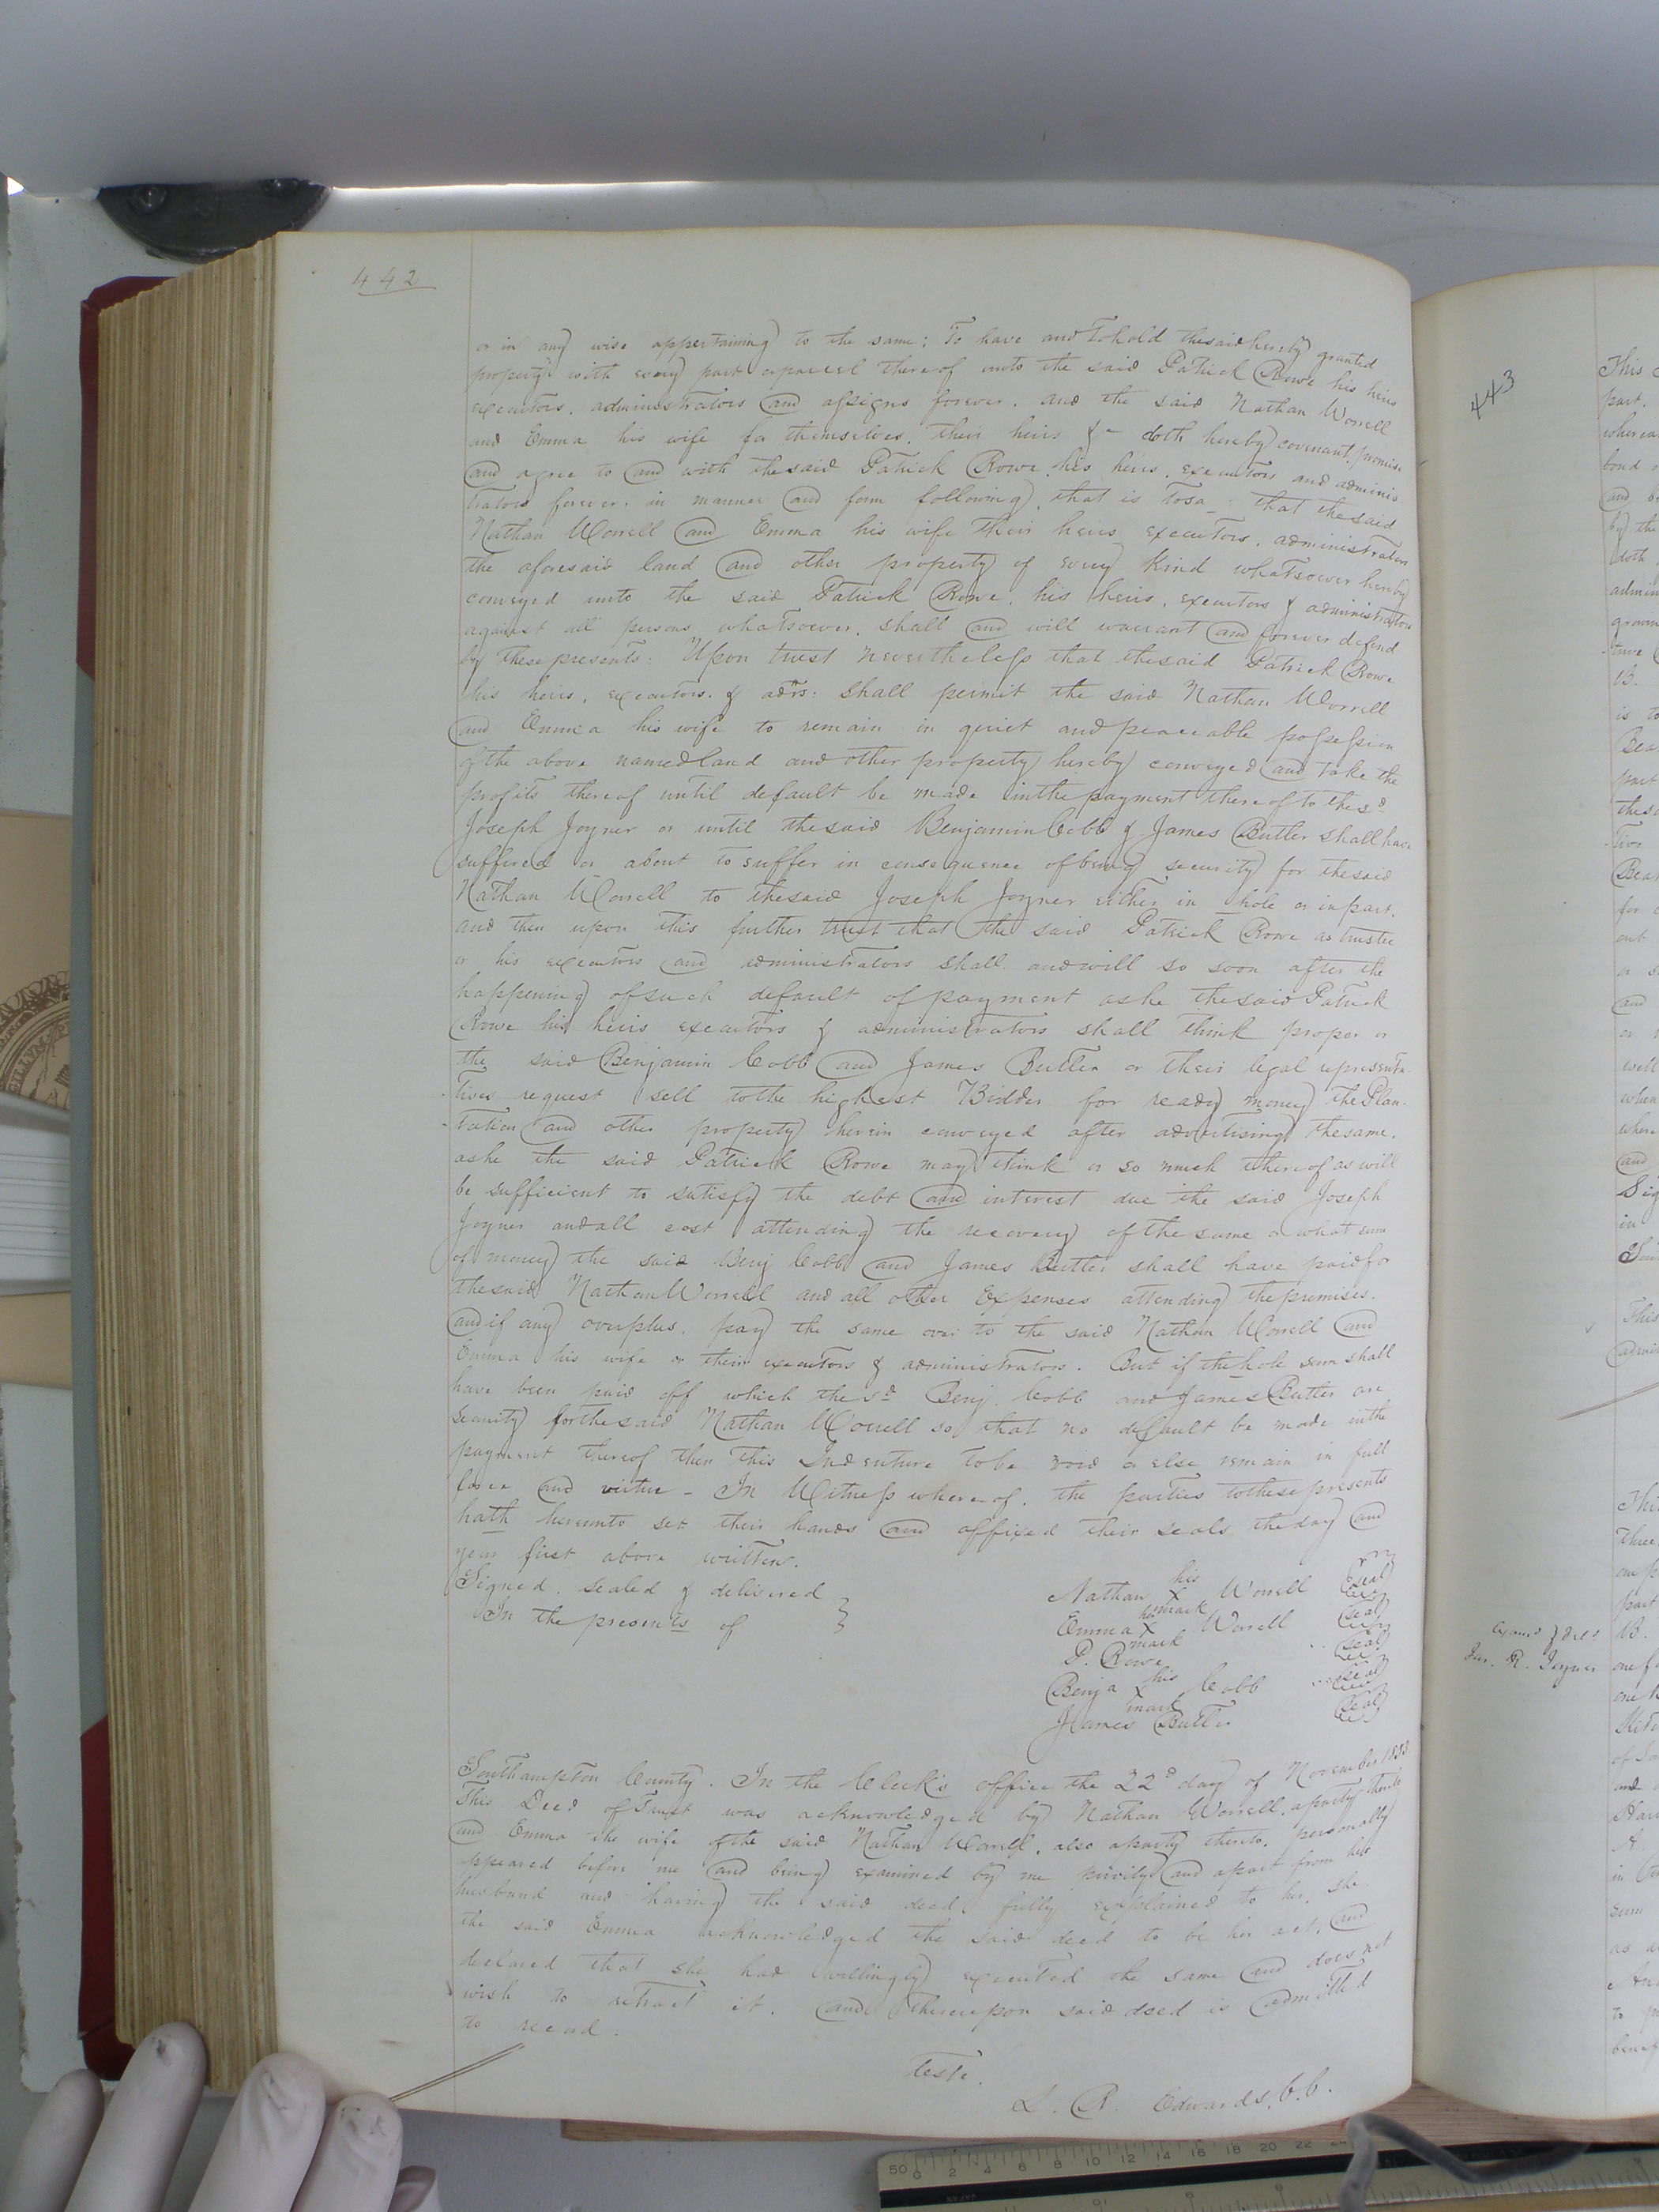 442
or in any wise appertaining to the same; To have and To hold the said hereby granted
property with every part & parcel thereof unto the said Patrick Rowe his heirs
executors, administrators and assigns forever. and the said Nathan Worrell
and Emma his wife for themselves, their heirs &c doth hereby covenant, promise
and agree to and with the said Patrick Rowe, his heirs, executors and adminis-
trators forever, in manner and form following, that is to say that the said
Nathan Worrell and Emma his wife their heirs executors, administrators
the aforesaid land and other property of every kind whatsoever hereby
conveyed unto the said Patrick Rowe, his heirs, executors & administrators
against all persons whatsoever, shall and will warrant and forever defend
by these presents: Upon trust nevertheless that the said Patrick Rowe
his heirs, executors, & adrs: shall permit the said Nathan Worrell
and Emma his wife to remain in quiet and peaceable possession
of the above named land and other property hereby conveyed and take the
profits thereof until default be made in the payment thereof to the sd
Joseph Joyner or until the said Benjamin Cobb & James Butler shall have
suffered or about to suffer in consequence of being security for the said
Nathan Worrell to the said Joseph Joyner either in hole or in part.
and then upon this further trust that the said Patrick Rowe as trustee
or his executors and administrators shall and will so soon after the
happening of such default of payment as he the said Patrick
Rowe his heirs executors & administrators shall think proper or
the said Benjamin Cobb and James Butler or their legal representa-
-tives request sell to the highest Bidder for ready money the Plan-
-tation and other property herein conveyed after advertising the same,
as he the said Patrick Rowe may think or so much thereof as will
be sufficient to satisfy the debt and interest due the said Joseph
Joyner and all cost attending the recovery of the same or what sum
of money the said Benj Cobb and James Butler shall have paid for
the said Nathan Worrell and all other Expenses attending the premises.
and if any overplus, pay the same over to the said Nathan Worrell and
Emma his wife or their executors & administrators. But if the hole sum shall
have been paid off which the sd Benj. Cobb and James Butler are
security for the said Nathan Worrell so that no default be made in the
payment thereof then this Indenture to be void or else remain in full
force and virtue - In Witness whereof, the parties to these presents
hath hereunto set their hands and affixed their seals the day and
year first above written.
Signed, sealed & delivered
In the presents of
his
Nathan X Worrell seal
mark
her
Emma X Worrell seal
mark
P. Rowe seal
his
Benja X Cobb seal
mark
James Butler seal
Southampton County. In the Clerk's office the 22d day of November 1833
This Deed of Trust was acknowledged by Nathan Worrell, a party thereto
and Emma the wife of the said Nathan Worrell, also a party thereto, personally
appeared before me and being examined by me privily and apart from her
husband and having the said deed fully explained to her, she
the said Emma acknowledged the said deed to be her act, and
declared that she had willingly executed the same and does not
wish to retract it. and thereupon said deed is admitted
to record.
Teste.
L. R. Edwards, C.C.
443
Jas. R. Joyner